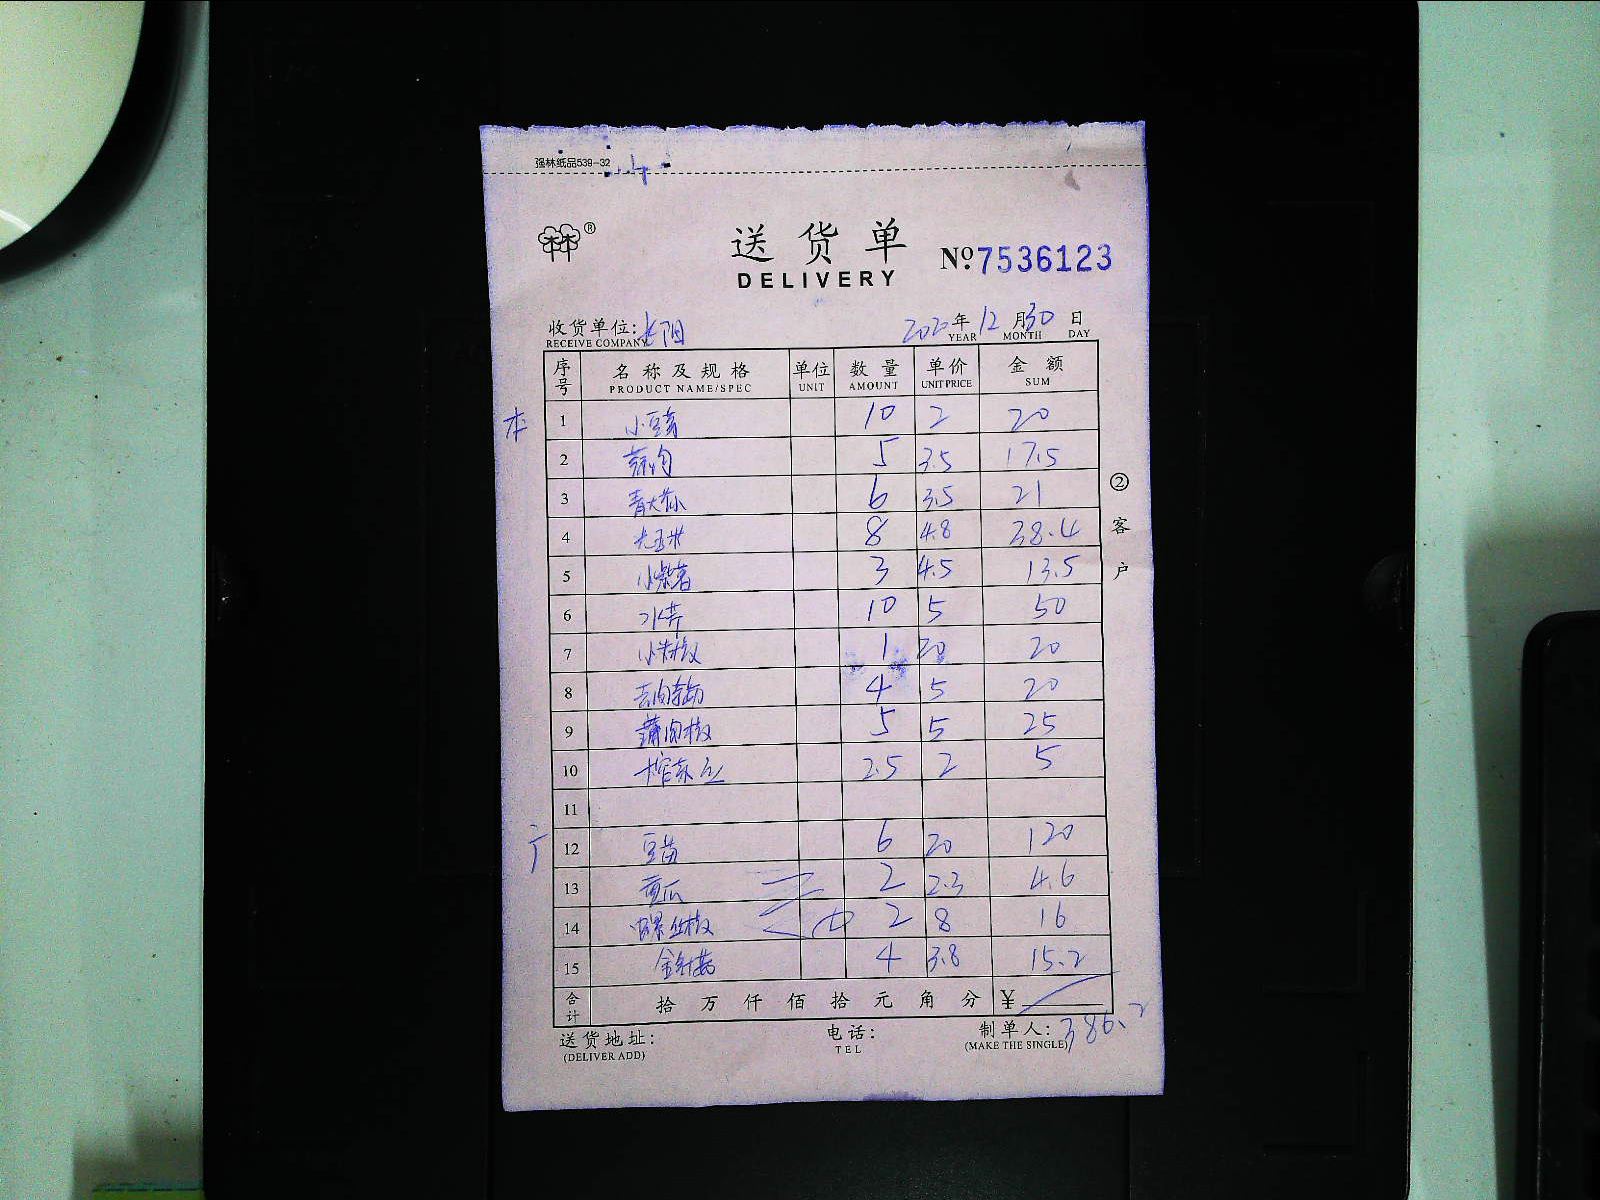 强林纸品539-32
林®
送货单
DELIVERY
№7536123
收货单位:长阳 2020年12月30日
RECEIVE COMPANY YEAR MONTH DAY
序号 名称及规格 单位 数量 单价 金额
PRODUCT NAME/SPEC UNIT AMOUNT UNIT PRICE SUM
本 1 小豆芽 10 2 20
2 5 3.5 17.5
3 6 3.5 21
4 8 4.8 38.4
5 小紫薯 3 4.5 13.5
6 水芹 10 5 50
7 1 20 20
8 4 5 20
9 5 5 25
10 2.5 2 5
11
12 豆苗 6 20 120
13 黄瓜 2 2.3 4.6
14 螺丝椒 2 8 16
15 金针菇 4 3.8 15.2
合计 拾万仟佰拾元角分 ¥
386.2
②客户
送货地址: 电话: 制单人:
(DELIVER ADD) TEL (MAKE THE SINGLE)